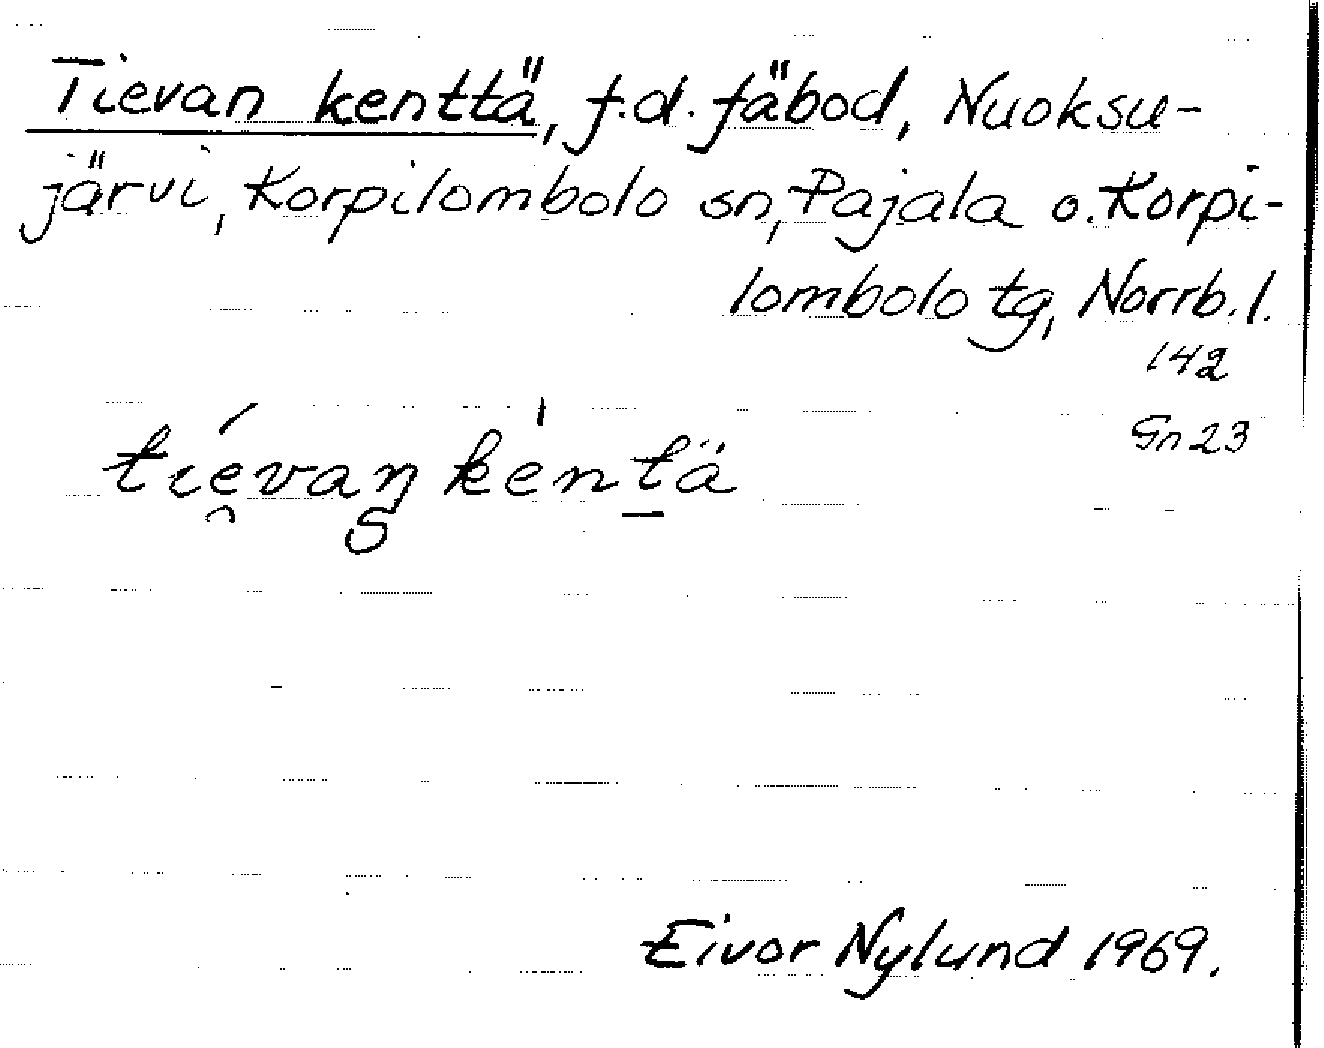 Tievan kenttä, f.d. fäbod, Nuoksu-
järvi, Korpilombolo sn, Pajala o. Korpi-
lombolo tg, Norrb. l.
142
Gn 23
tie̯vaŋ kentä
Eivor Nylund 1969.